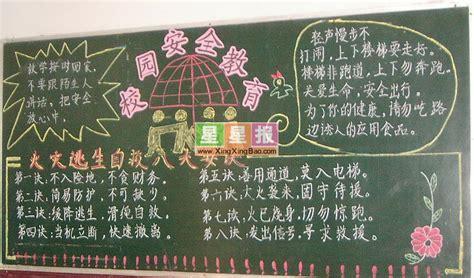 校园安全教育
放学按时回家,
不要跟陌生人
讲话,把安全
放心中。
轻声慢步不
打闹,上下楼梯要走好。
楼梯非跑道,上下勿奔跑。
关爱生命,安全出行。
为了你的健康,请勿吃路
边诱人的应用食品。
星星报
www.XingXingBao.com
火灾逃生自救八大
第一诀:不入险地,不贪财物。
第二诀:简易防护,不可缺少。
第三诀:缓降逃生,滑绳自救。
第四诀:当机立断,快速撤离。
第五诀:善用通道,莫入电梯。
第六诀:大火袭来,固守待援。
第七诀:火已烧身,切勿惊跑。
第八诀:发出信号,寻求救援。